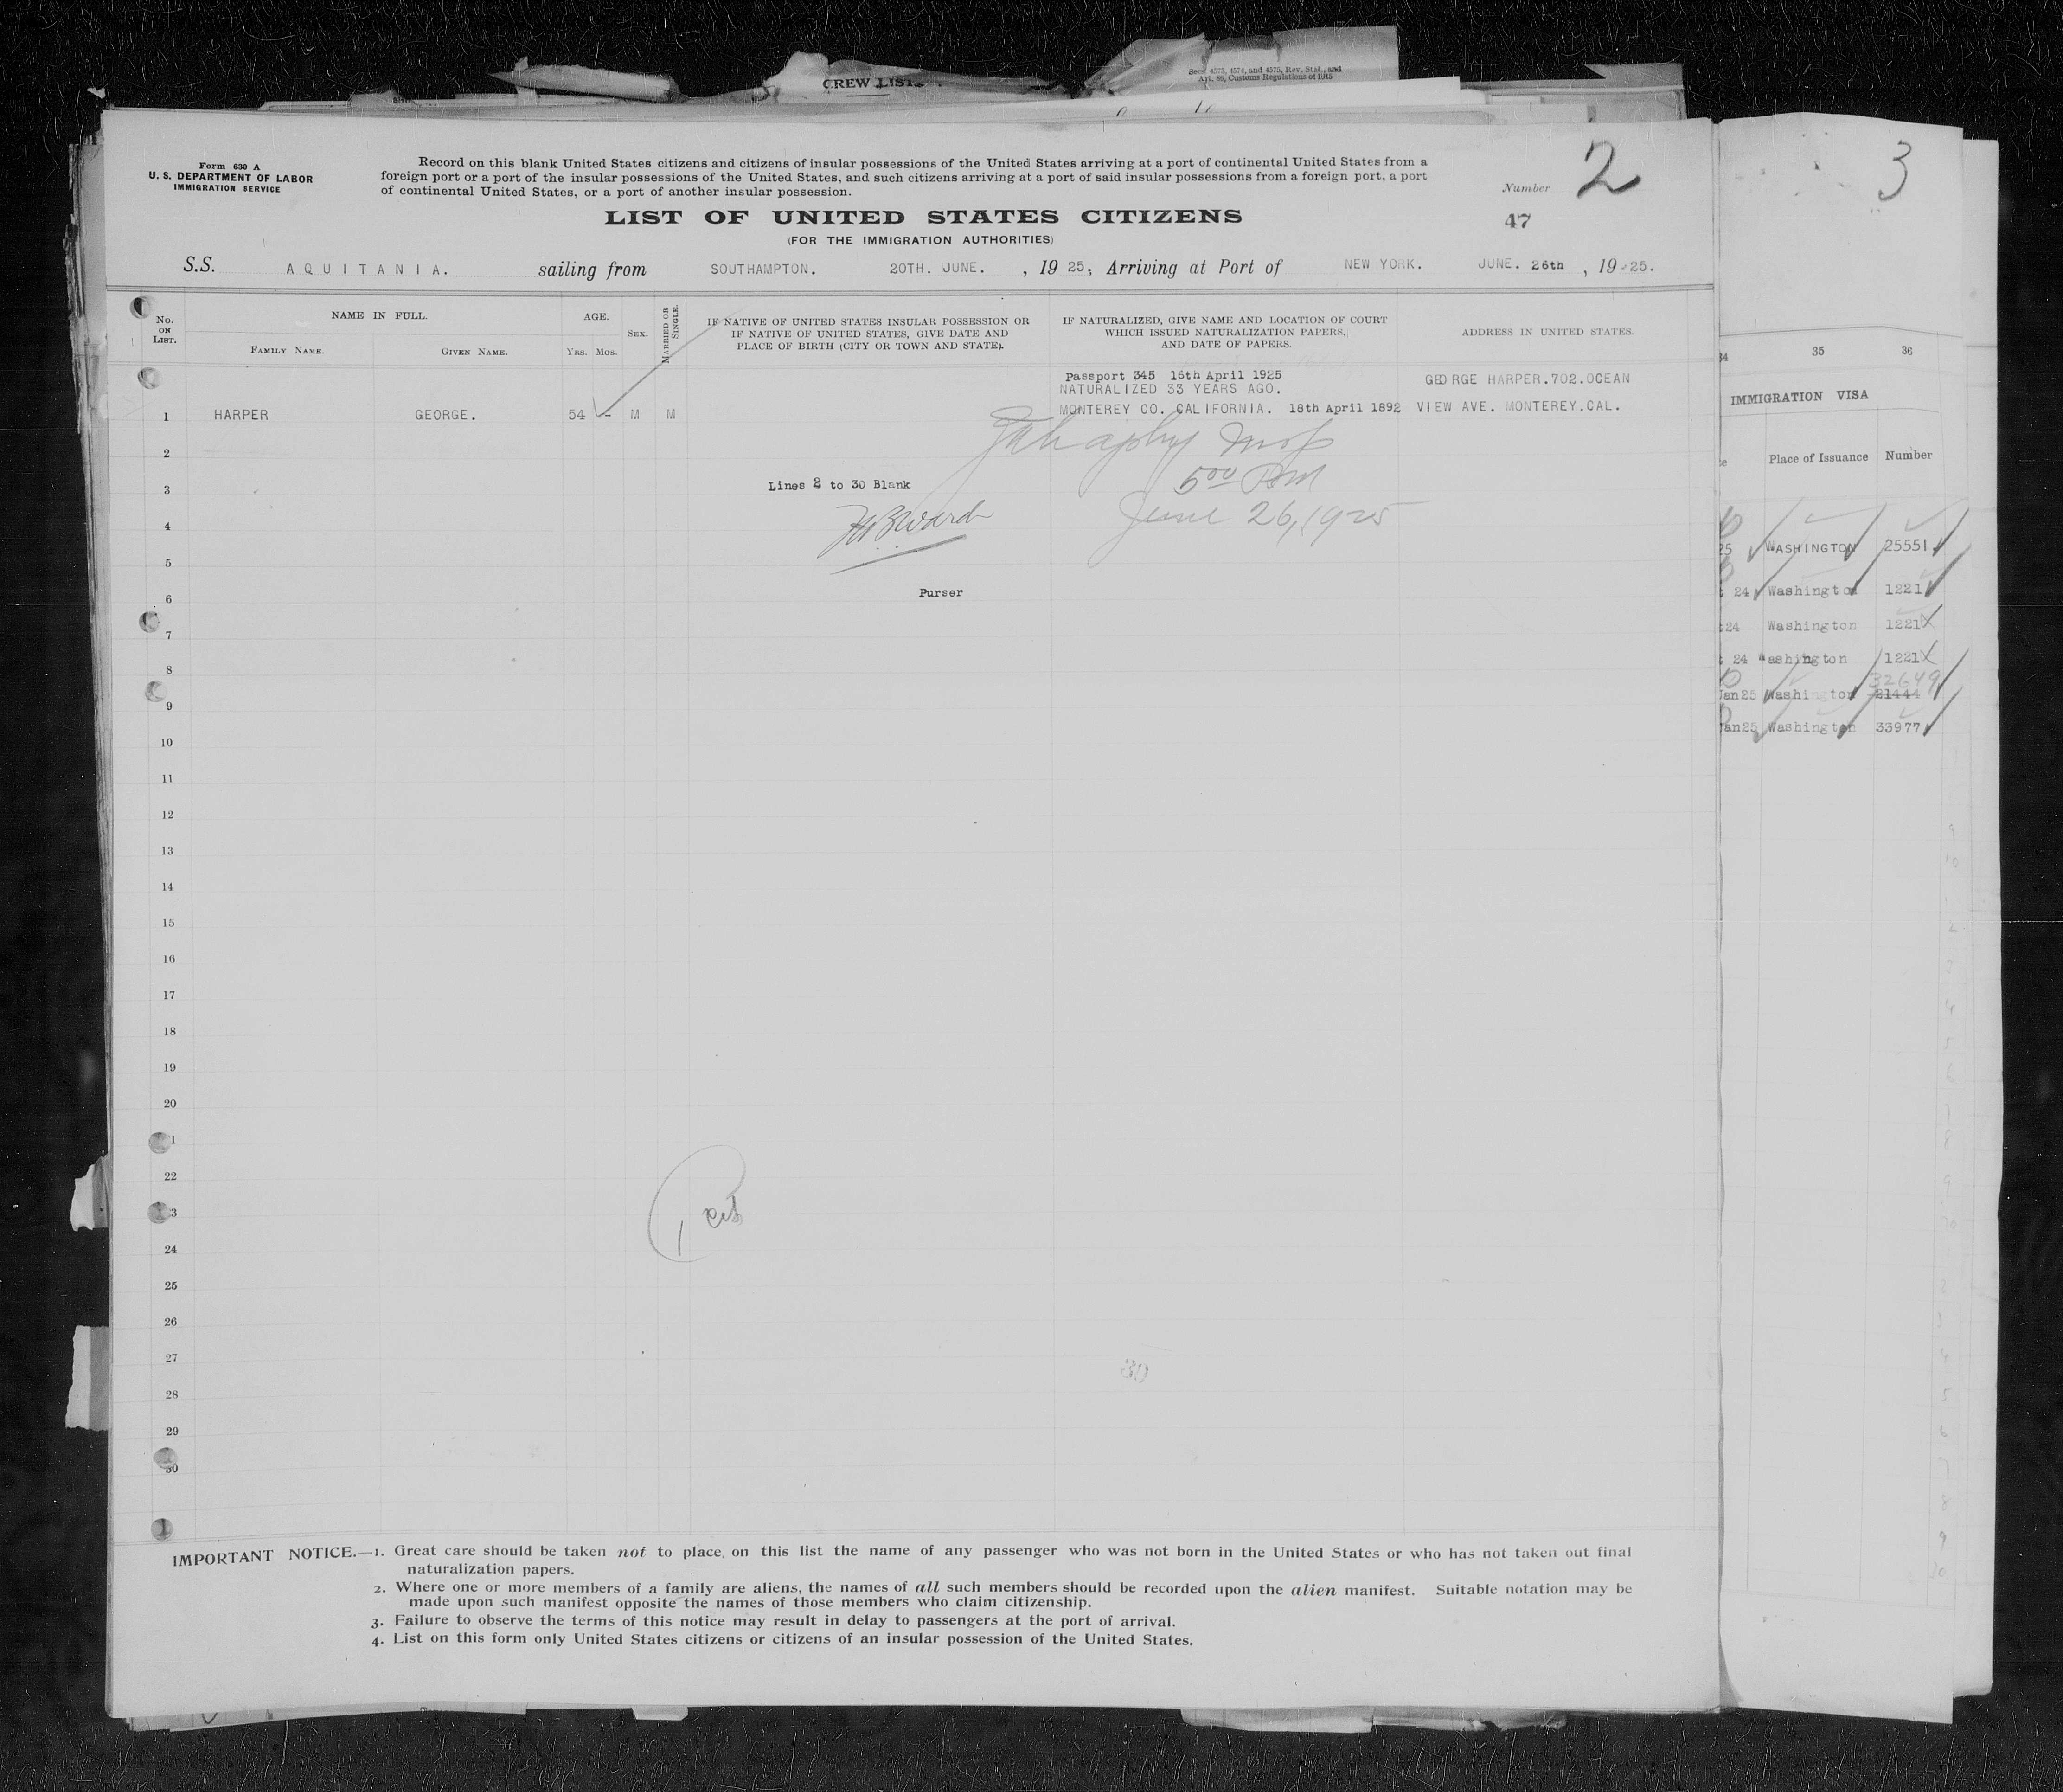 CREW LIST
Secs. 4573, 4574, and 4575, Rev. Stat., and
Art. 86, Customs Regulations of 1915
Form 630 A
U. S. DEPARTMENT OF LABOR
IMMIGRATION SERVICE
Record on this blank United States citizens and citizens of insular possessions of the United States arriving at a port of continental United States from a
foreign port or a port of the insular possessions of the United States, and such citizens arriving at a port of said insular possessions from a foreign port, a port
of continental United States, or a port of another insular possession.
Number 2
47
LIST OF UNITED STATES CITIZENS
(FOR THE IMMIGRATION AUTHORITIES)
S.S. AQUITANIA. sailing from SOUTHAMPTON. 20TH. JUNE. , 19 25, Arriving at Port of NEW YORK. JUNE. 26th , 19 25.
No. ON LIST.
NAME IN FULL.
FAMILY NAME.
GIVEN NAME.
AGE.
YRS. MOS.
SEX.
MARRIED OR SINGLE.
IF NATIVE OF UNITED STATES INSULAR POSSESSION OR
IF NATIVE OF UNITED STATES, GIVE DATE AND
PLACE OF BIRTH (CITY OR TOWN AND STATE).
IF NATURALIZED, GIVE NAME AND LOCATION OF COURT
WHICH ISSUED NATURALIZATION PAPERS,
AND DATE OF PAPERS.
ADDRESS IN UNITED STATES.
Passport 345 16th April 1925
NATURALIZED 33 YEARS AGO.
GEORGE HARPER.702.OCEAN
1 HARPER GEORGE. 54 - M M MONTEREY CO. CALIFORNIA. 18th April 1892 VIEW AVE. MONTEREY.CAL.
2
3 Lines 2 to 30 Blank
5 00 PM
4 June 26, 1925
5
6 Purser
7
8
9
10
11
12
13
14
15
16
17
18
19
20
1
22
3
24
25
26
27
30
28
29
30
IMPORTANT NOTICE.—1. Great care should be taken not to place on this list the name of any passenger who was not born in the United States or who has not taken out final
naturalization papers.
2. Where one or more members of a family are aliens, the names of all such members should be recorded upon the alien manifest. Suitable notation may be
made upon such manifest opposite the names of those members who claim citizenship.
3. Failure to observe the terms of this notice may result in delay to passengers at the port of arrival.
4. List on this form only United States citizens or citizens of an insular possession of the United States.
3
34 35 36
IMMIGRATION VISA
Place of Issuance Number
25 WASHINGTON 25551
24 Washington 1221
24 Washington 1221
24 Washington 1221
32649
Jan25 Washington 21444
Jan25 Washington 33977